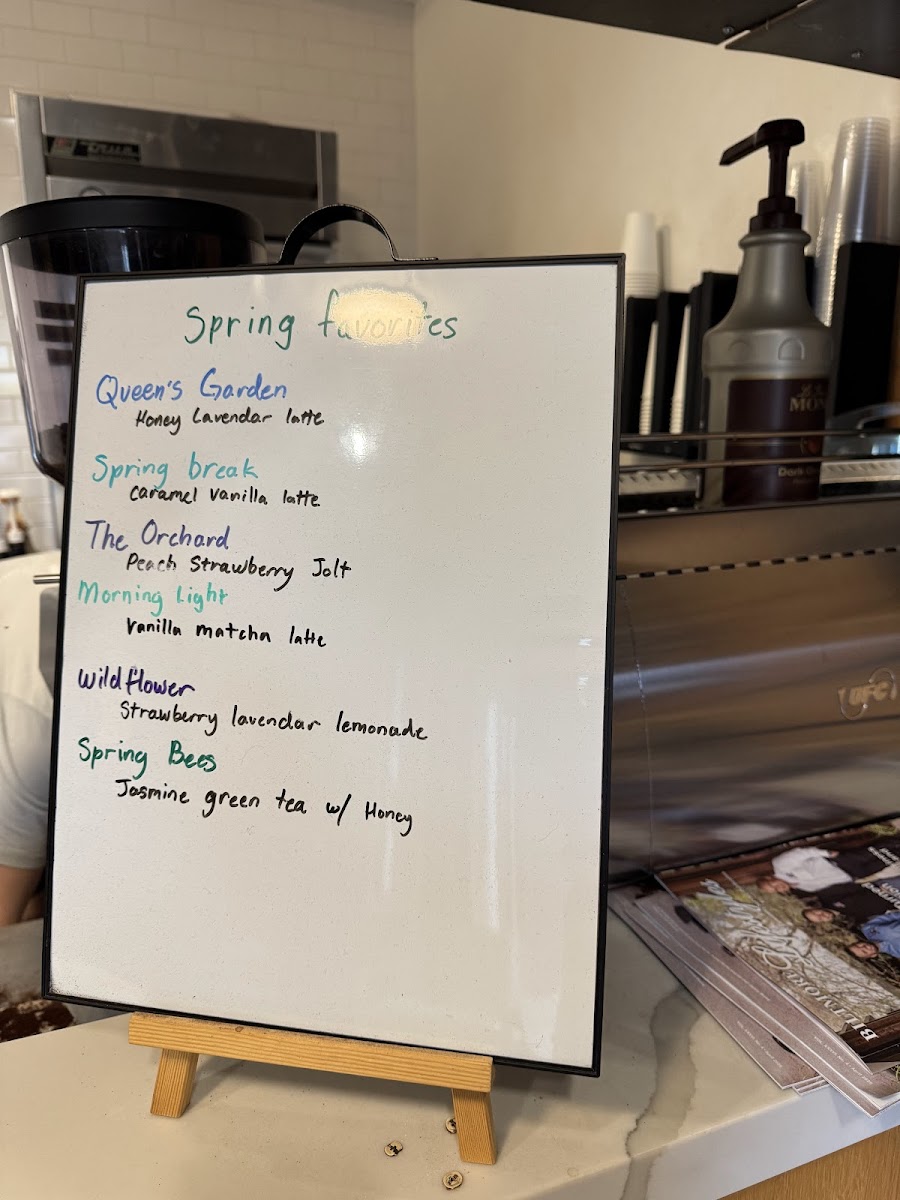 true
Spring favorites
Queen's Garden
Honey Lavendar latte
Spring break
Caramel vanilla latte
The Orchard
Peach Strawberry Jolt
Morning Light
Vanilla matcha latte
Wildflower
Strawberry lavendar lemonade
Spring Bees
Jasmine green tea w/ Honey
UFC